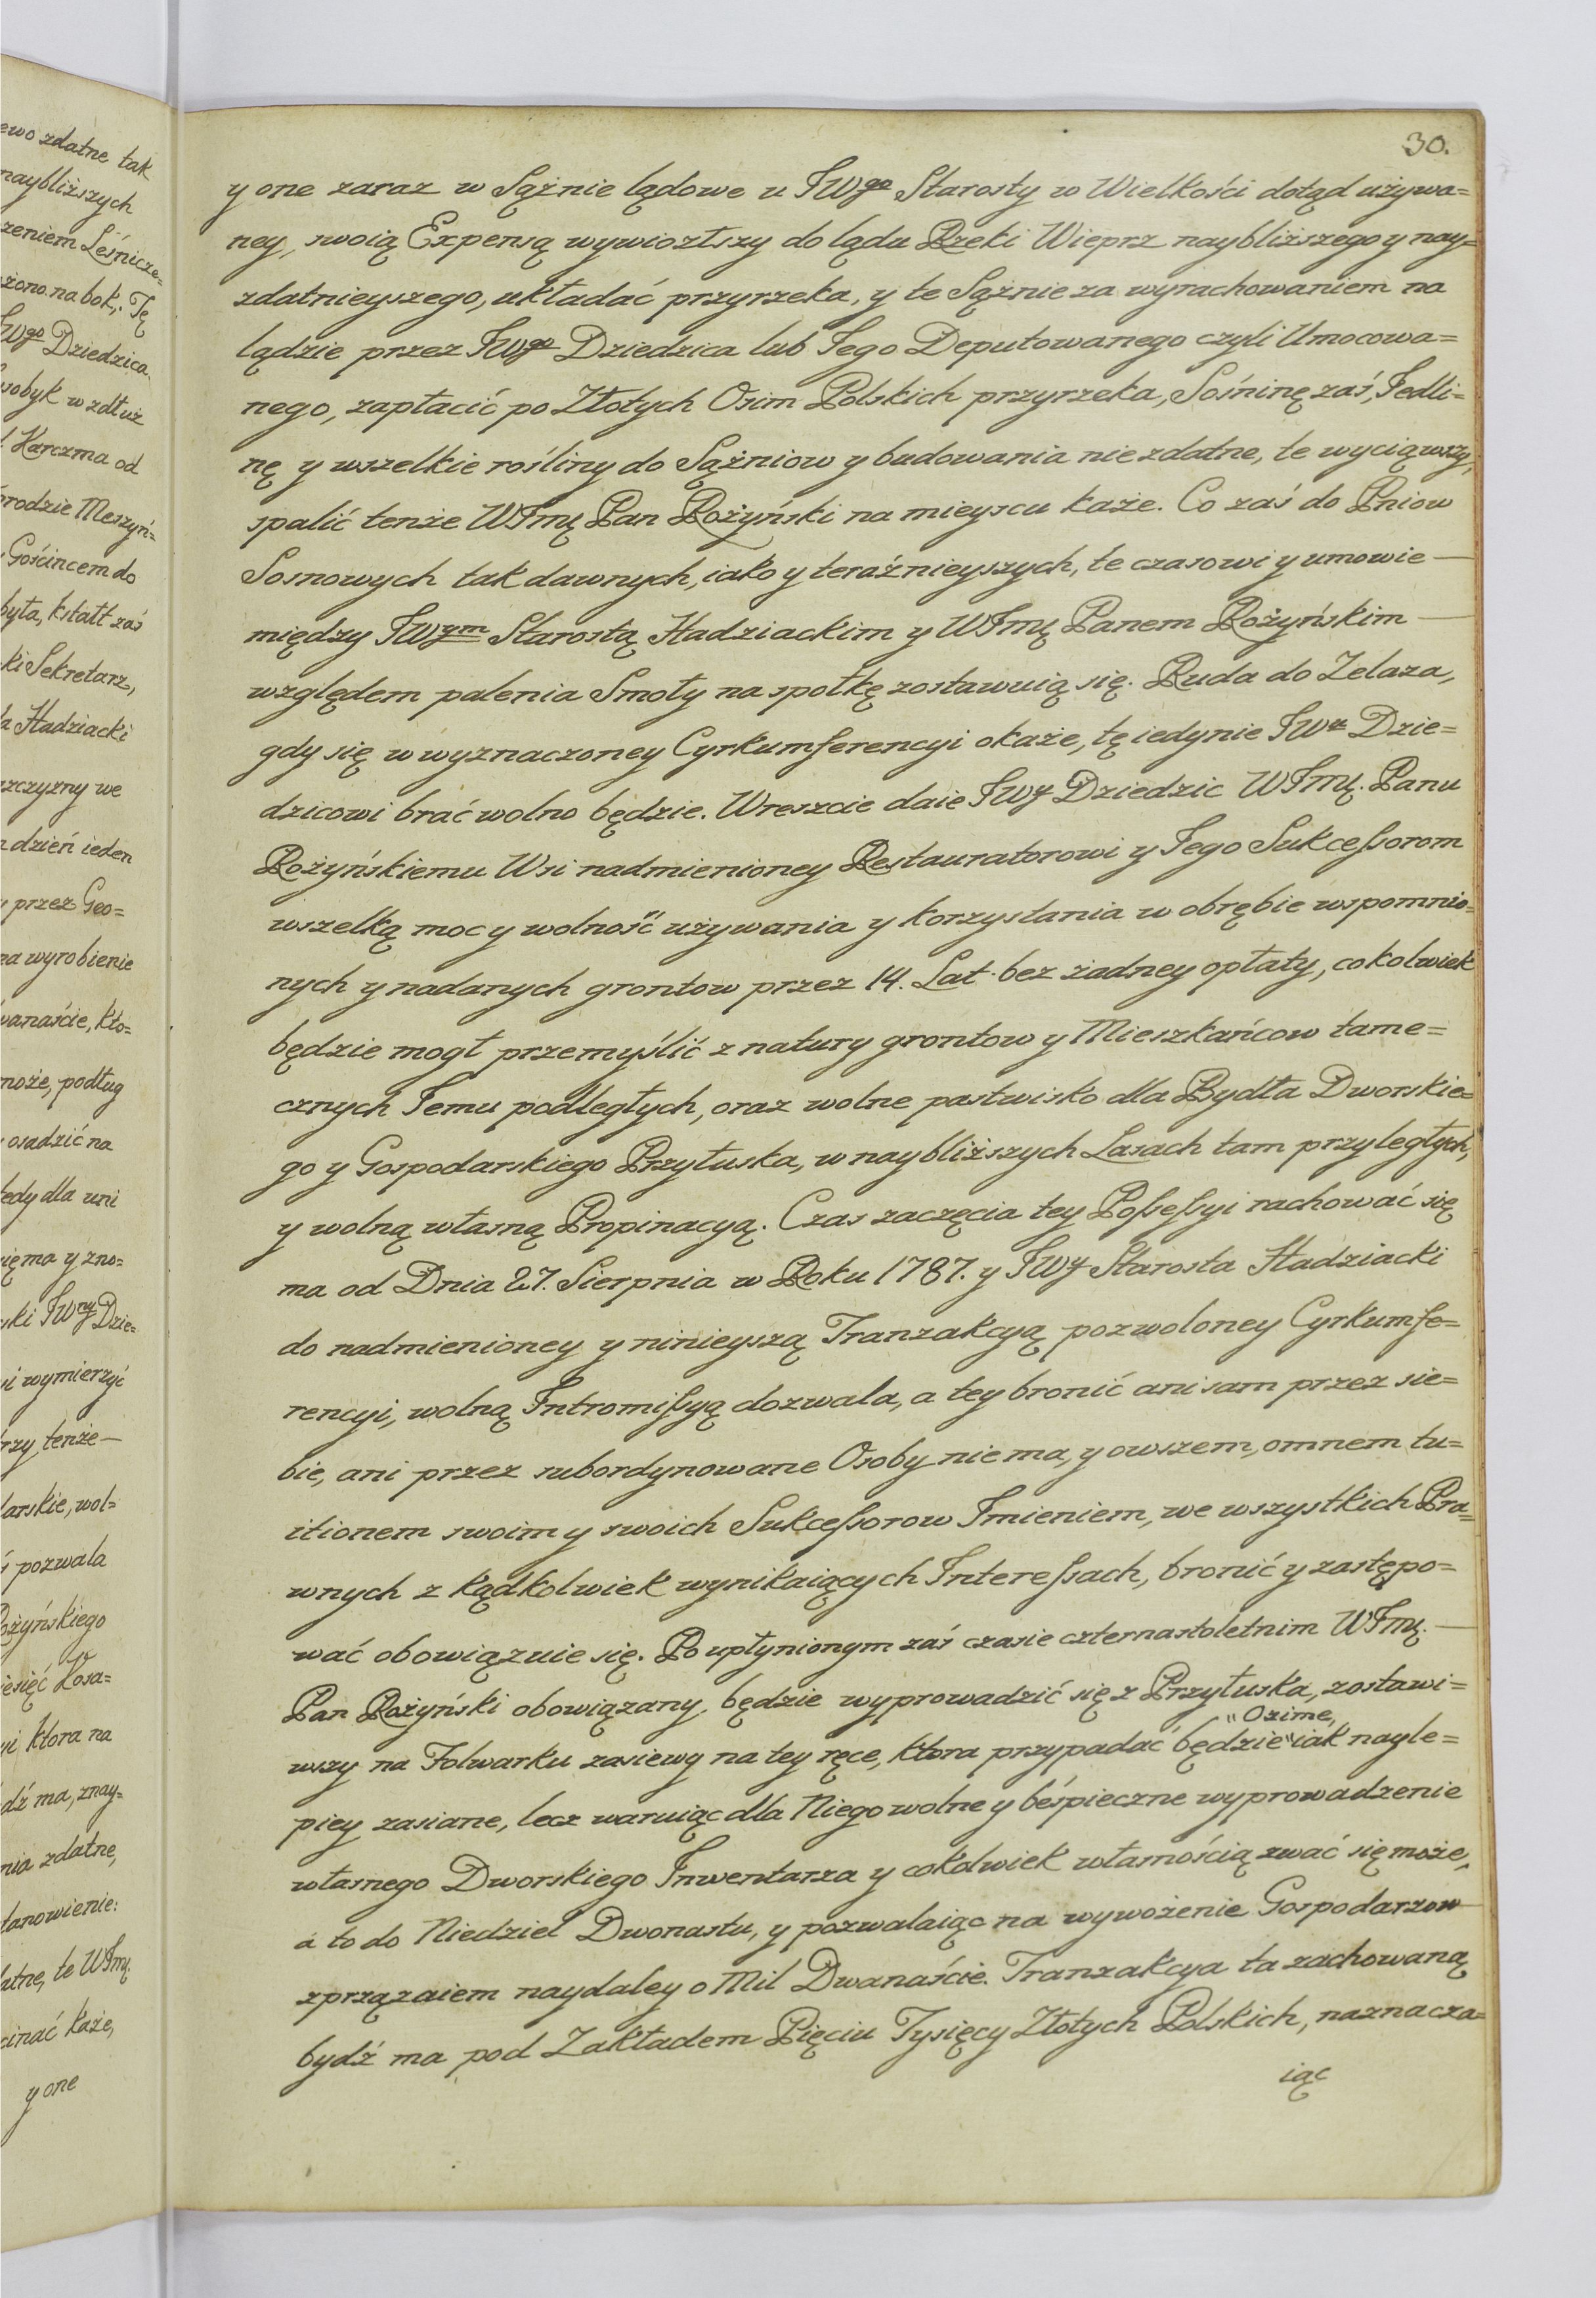 ewo zdatne tak
naybliższych
zeniem Leśnicze=
żono na bok. Tę
JWgo Dziedzica.
sobyk wzdłuż
Karczma od
brodzie Meszyń=
Gościncem do
była, kstałt zaś
ki Sekretarz,
a Hadziacki
szczyzny we
dzień ieden
przez Geo=
na wyrobienie
wanaście, kto=
może, podług
osadzić na
tedy dla uni
ię ma y zno=
ski JWny Dzie=
i wymierzyć
rzy tenże —
larskie, wol=
ś pozwala
Rożyńskiego
iesięć Kosa=
yi ktora na
dź ma, znay=
nia zdatne,
tanowienie:
atne, te WJmę.
cinać każe,
y one
30.
y one zaraz w Sążnie lądowe u JWgo Starosty w Wielkości dotąd używa=
ney, swoią Expensą wywiozłszy do lądu Rzeki Wieprz naybliższego y nay=
zdatnieyszego, układać przyrzeka, y te Sążnie za wyrachowaniem na
lądzie przez JWgo Dziedzica lub Jego Deputowanego czyli Umocowa=
nego, zapłacić po Złotych Osim Polskich przyrzeka, Sośninę zaś, Jedli=
nę y wszelkie rośliny do Sążniow y budowania nie zdatne, te wyciąwszy,
spalić tenże WJmę Pan Rożyński na mieyscu każe. Co zaś do Pniow
Sosnowych tak dawnych, iako y teraźnieyszych, te czasowi y umowie —
między JWym Starostą Hadziackim y WJmę Panem Rożyńskim —
względem palenia Smoły na społkę zostawuią się. Ruda do Zelaza,
gdy się w wyznaczoney Cyrkumferencyi okaże, tę iedynie JWu Dzie=
dzicowi brać wolno będzie. Wreszcie daie JWy Dziedzic WJmę. Panu
Rożyńskiemu Wsi nadmienioney Restauratorowi y Jego Sukcessorom
wszelką moc y wolność używania y korzystania w obrębie wspomnio=
nych y nadanych grontow przez 14. Lat bez żadney opłaty, cokolwiek
będzie mogł przemyślić z natury grontow y Mieszkańcow tame=
cznych Jemu podległych, oraz wolne pastwisko dla Bydła Dworskie=
go y Gospodarskiego Przytuska, w naybliższych Lasach tam przyległych,
y wolną własną Propinacyą. Czas zaczęcia tey Possessyi rachować się
ma od Dnia 27. Sierpnia w Roku 1787. y JWy Starosta Hadziacki
do nadmienioney y ninieyszą Tranzakcyą pozwoloney Cyrkumfe=
rencyi, wolną Intromissyą dozwala, a tey bronić ani sam przez sie=
bie, ani przez subordynowane Osoby nie ma, y owszem, omnem tu=
itionem swoim y swoich Sukcessorow Imieniem, we wszystkich Pra=
wnych z kądkolwiek wynikaiących Interessach, bronić y zastępo=
wać obowiązuie się. Po upłynionym zaś czasie czternastoletnim WJmę. —
Pan Rożyński obowiązany będzie wyprowadzić się z Przytuska, zostawi=
"Ozime,
wszy na Folwarku zasiewy na tey ręce, ktora przypadać będzie "iak nayle=
piey zasiane, lecz waruiąc dla Niego wolne y beśpieczne wyprowadzenie
własnego Dworskiego Inwentarza y cokolwiek własnością zwać się może,
a to do Niedziel Dwonastu, y pozwalaiąc na wywożenie Gospodarzow
zprzązaiem naydaley o Mil Dwanaście. Tranzakcya ta zachowaną
bydź ma pod Zakładem Pięciu Tysięcy Złotych Polskich, naznacza=
iąc